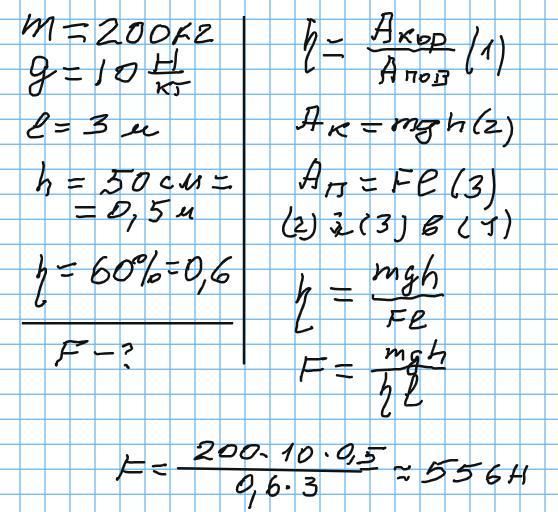 m = 200 кг
g = 10 Н/кг
l = 3 м
h = 50 см =
= 0,5 м
η = 60% = 0,6
F – ?
η = Aкор/Aпов (1)
Aк = mgh (2)
Aп = Fl (3)
(2) і (3) в (1)
η = mgh/Fl
F = mgh/ηl
F = 200 · 10 · 0,5/0,6 · 3 ≈ 556 Н